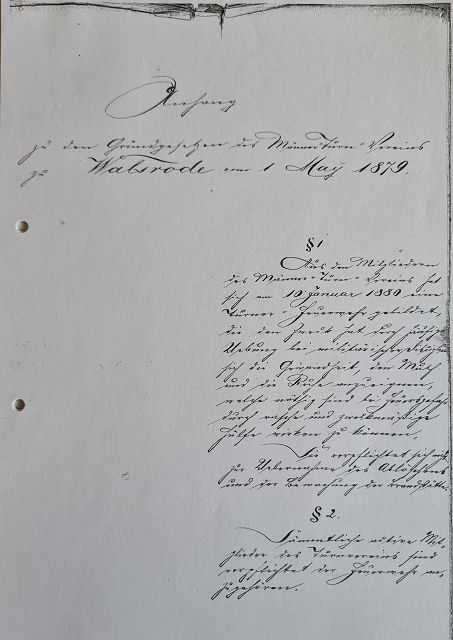 Anhang
zu den Grundgesetzen des Männer Turn-Vereins
zu Walsrode vom 1 May 1879.
§ 1
Aus den Mitgliedern
des Männer-Turn-Vereins hat
sich am 10 Januar 1880 eine
Turner-Feuerwehr gebildet,
die den Zweck hat durch
Uebung bei militärischer Disciplin
sich die Gewandheit, den Muth
und die Ruhe anzueignen,
welche nöthig sind bei Feuersgefahr
durch rasche und zweckmäßige
Hülfe wirken zu können.
Sie verpflichtet sich
zur Uebernahme des Ablöschens
und der Bewachung der Brandstätte.
§ 2.
Sämmtliche active Mit-
glieder des Turnvereins sind
verpflichtet der Feuerwehr an-
zugehören.